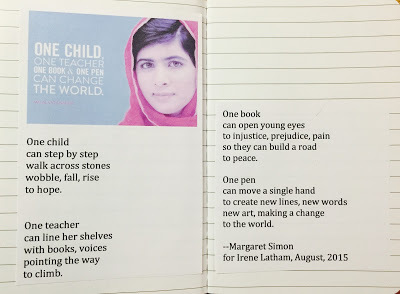 ONE CHILD,
ONE TEACHER
ONE BOOK & ONE PEN
CAN CHANGE
THE WORLD.
One child
can step by step
walk across stones
wobble, fall, rise
to hope.
One teacher
can line her shelves
with books, voices
pointing the way
to climb.
One book
can open young eyes
to injustice, prejudice, pain
so they can build a road
to peace.
One pen
can move a single hand
to create new lines, new words
new art, making a change
to the world.
--Margaret Simon
for Irene Latham, August, 2015